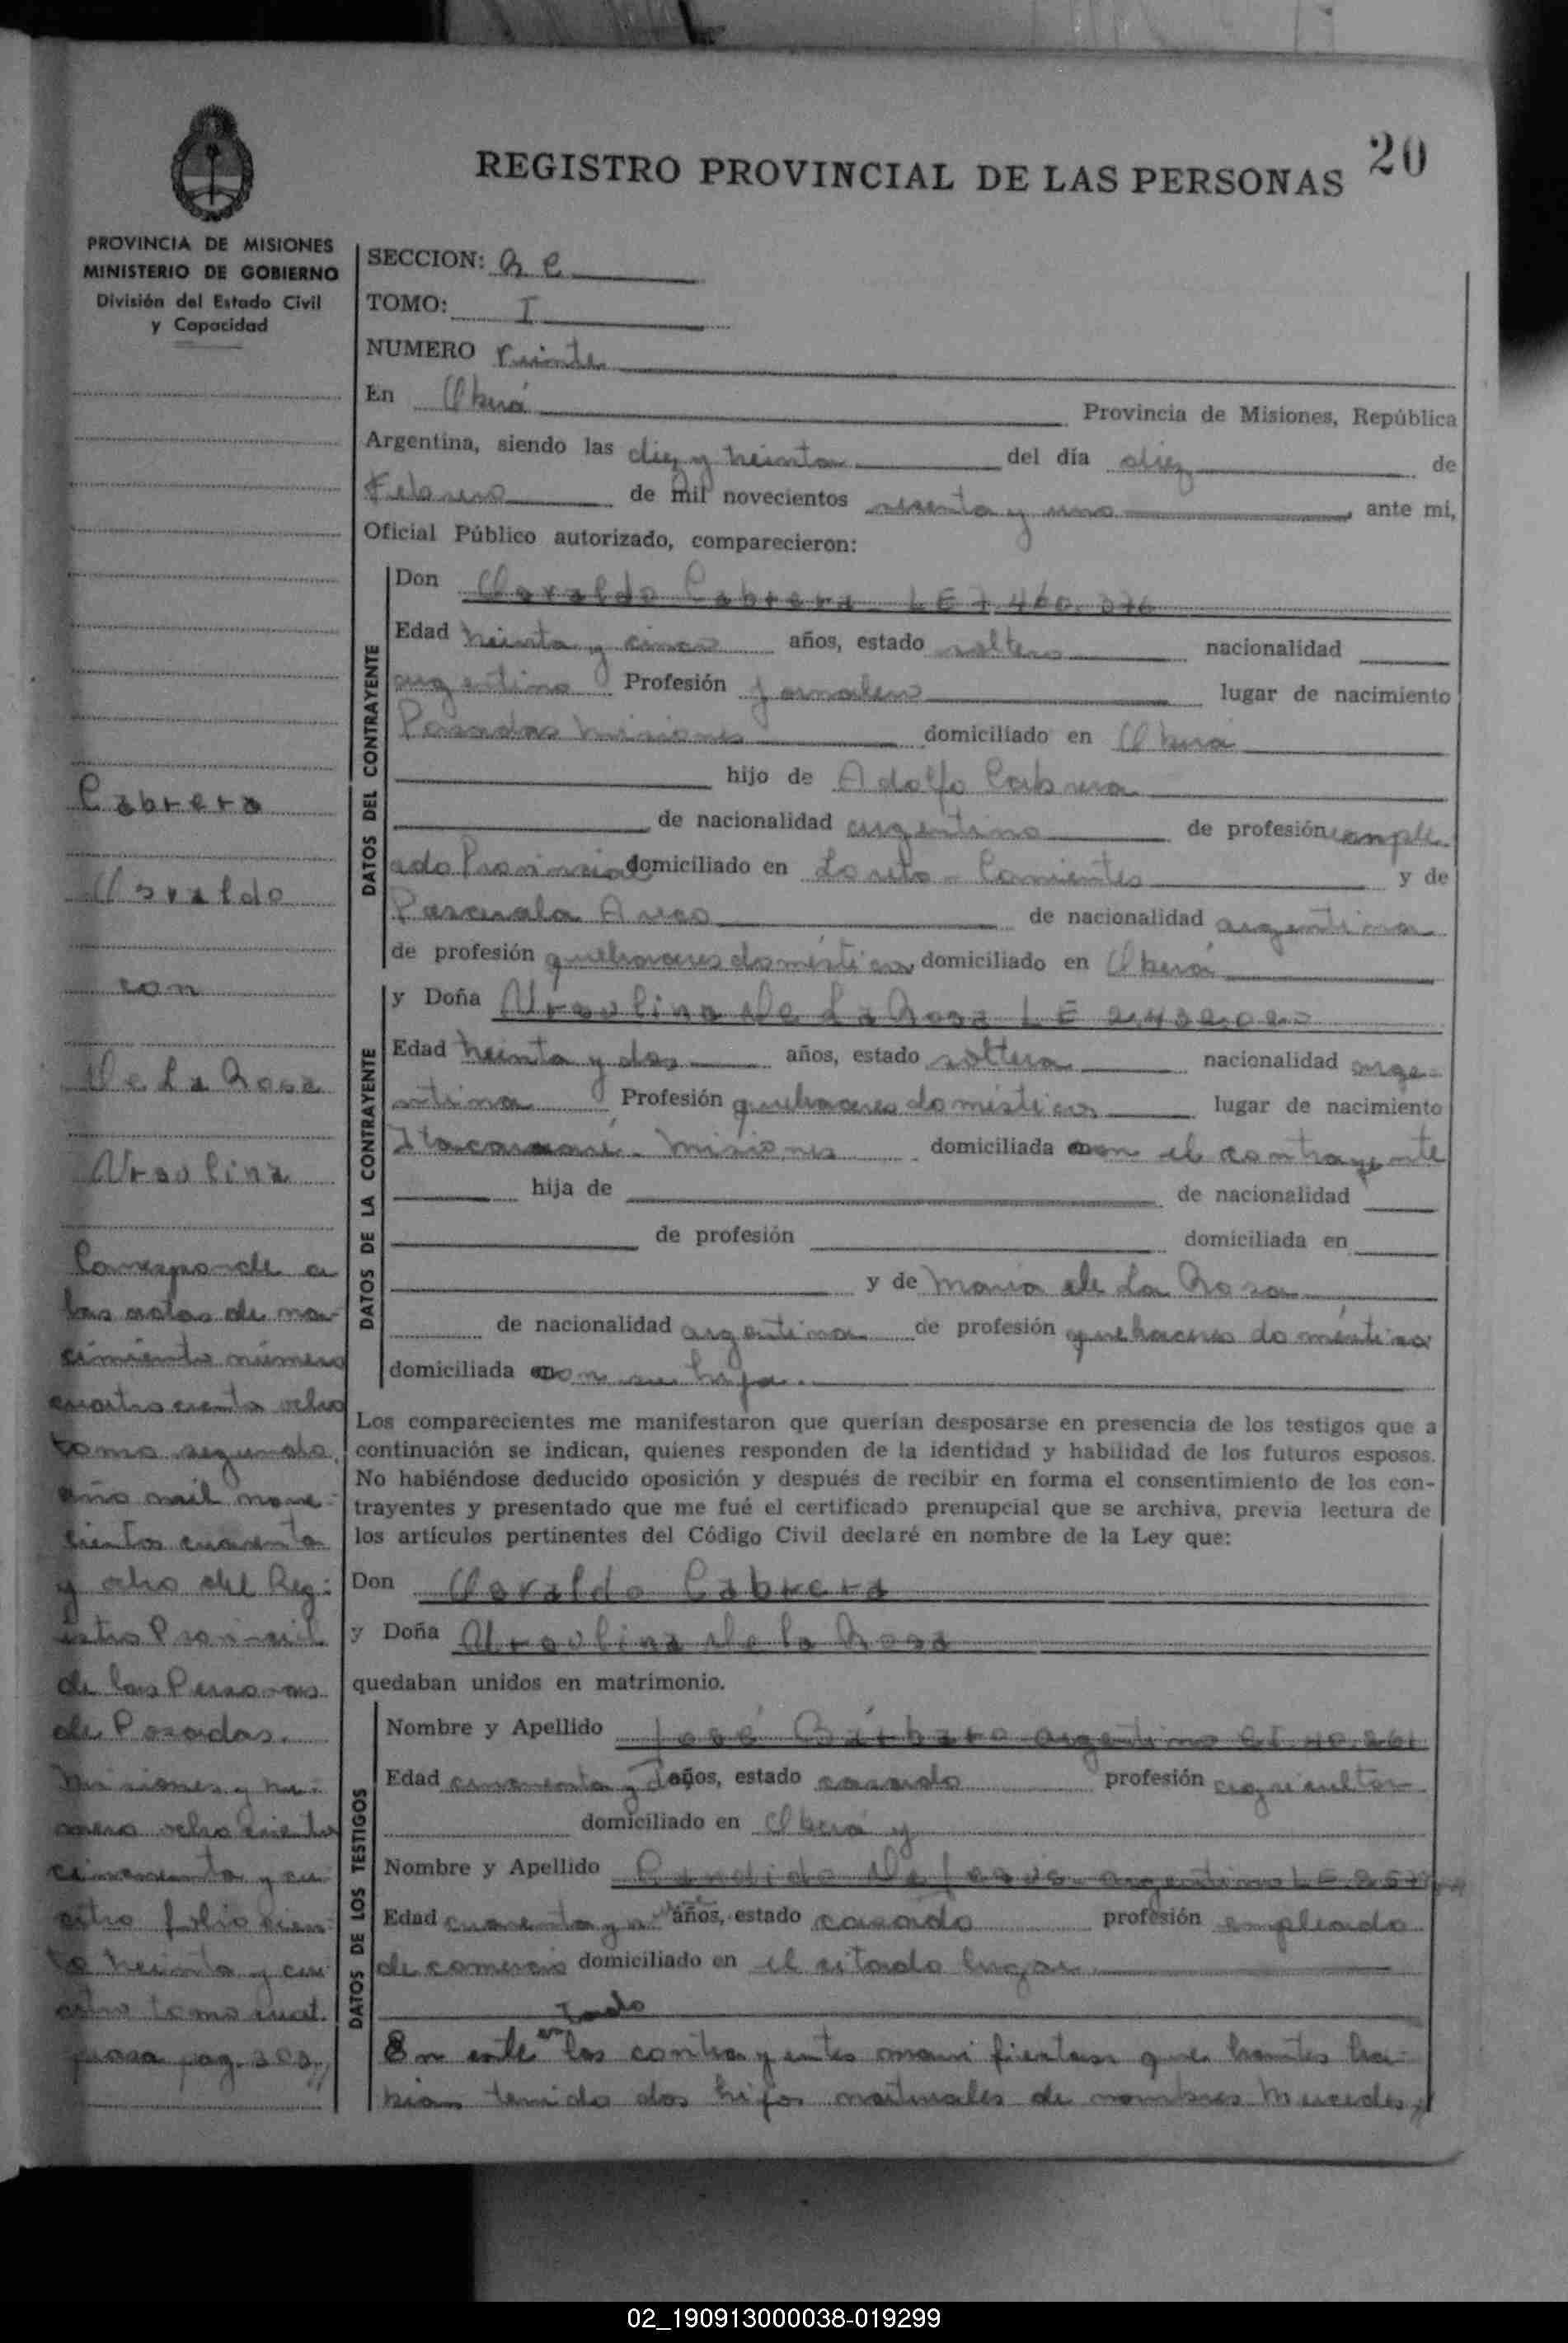 20
REGISTRO PROVINCIAL DE LAS PERSONAS
PROVINCIA DE MISIONES
MINISTERIO DE GOBIERNO
División del Estado Civil
y Capacidad
Cabrera
Osvaldo
con
De La Rosa
Ursulina
Corresponde a
las actas de na-
cimiento número
cuatrocientos ocho
tomo segundo,
año mil nove-
cientos cuarenta
y ocho del Reg-
istro Provincial
de las Personas
de Posadas.
Misiones y nú-
mero ochocientos
cincuenta y cu-
atro folio cien-
to treinta y cu-
atro tomo cuat.
SECCION:
TOMO: I
NUMERO veinte
En Oberá Provincia de Misiones, República
Argentina, siendo las diez y treinta del día diez de
Febrero de mil novecientos sesenta y uno ante mi,
Oficial Público autorizado, comparecieron:
DATOS DEL CONTRAYENTE
Don Osvaldo Cabrera LE 7.460.376
Edad treinta y cinco años, estado soltero nacionalidad
argentino Profesión jornalero lugar de nacimiento
Posadas Misiones domiciliado en Oberá
hijo de Adolfo Cabrera
de nacionalidad argentino de profesión emple-
ado Provincial domiciliado en Loreto - Corrientes y de
Pascuala de nacionalidad argentina
de profesión quehaceres domésticos domiciliado en Oberá
DATOS DE LA CONTRAYENTE
y Doña Ursulina De La Rosa LE
Edad treinta y dos años, estado soltera nacionalidad arge-
ntina Profesión quehaceres domésticos lugar de nacimiento
Itacaruaré - Misiones domiciliada con el contrayente
hija de de nacionalidad
de profesión domiciliada en
y de Maria de La Rosa
de nacionalidad argentina de profesión quehaceres domésticos
domiciliada con su hija.
Los comparecientes me manifestaron que querían desposarse en presencia de los testigos que a
continuación se indican, quienes responden de la identidad y habilidad de los futuros esposos.
No habiéndose deducido oposición y después de recibir en forma el consentimiento de los con-
trayentes y presentado que me fué el certificado prenupcial que se archiva, previa lectura de
los artículos pertinentes del Código Civil declaré en nombre de la Ley que:
Don Osvaldo Cabrera
y Doña Ursulina De la Rosa
quedaban unidos en matrimonio.
DATOS DE LOS TESTIGOS
Nombre y Apellido José Bárbaro argentino
Edad años, estado casado profesión agricultor
domiciliado en Oberá y
Nombre y Apellido Candido De Jesús argentino LE
Edad cuarenta y años, estado casado profesión empleado
de comercio domiciliado en el citado lugar
En este los contrayentes manifiestan que
tenido dos hijos naturales de nombres Mercedes y
02_190913000038-019299